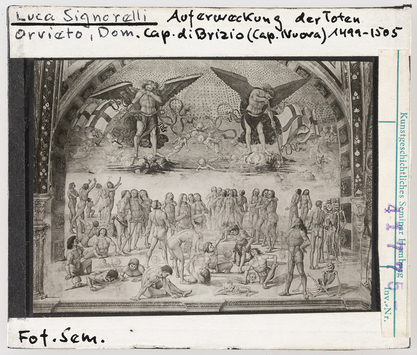 Luca Signorelli Auferweckung der Toten
Orvieto, Dom. Cap. di Brizio (Cap. Nuova) 1499-1505
Kunstgeschichtliches Seminar Hamburg
Inv.-Nr.
Fot. Sem.